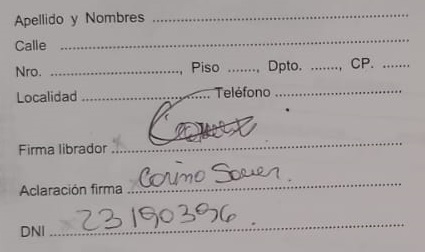 Apellido y Nombres ....................
Calle ....................
Nro. ...................., Piso ......., Dpto. ......., CP. .......
Localidad .................... Teléfono ....................
Firma librador ....................
Aclaración firma Corino
DNI 23190396.